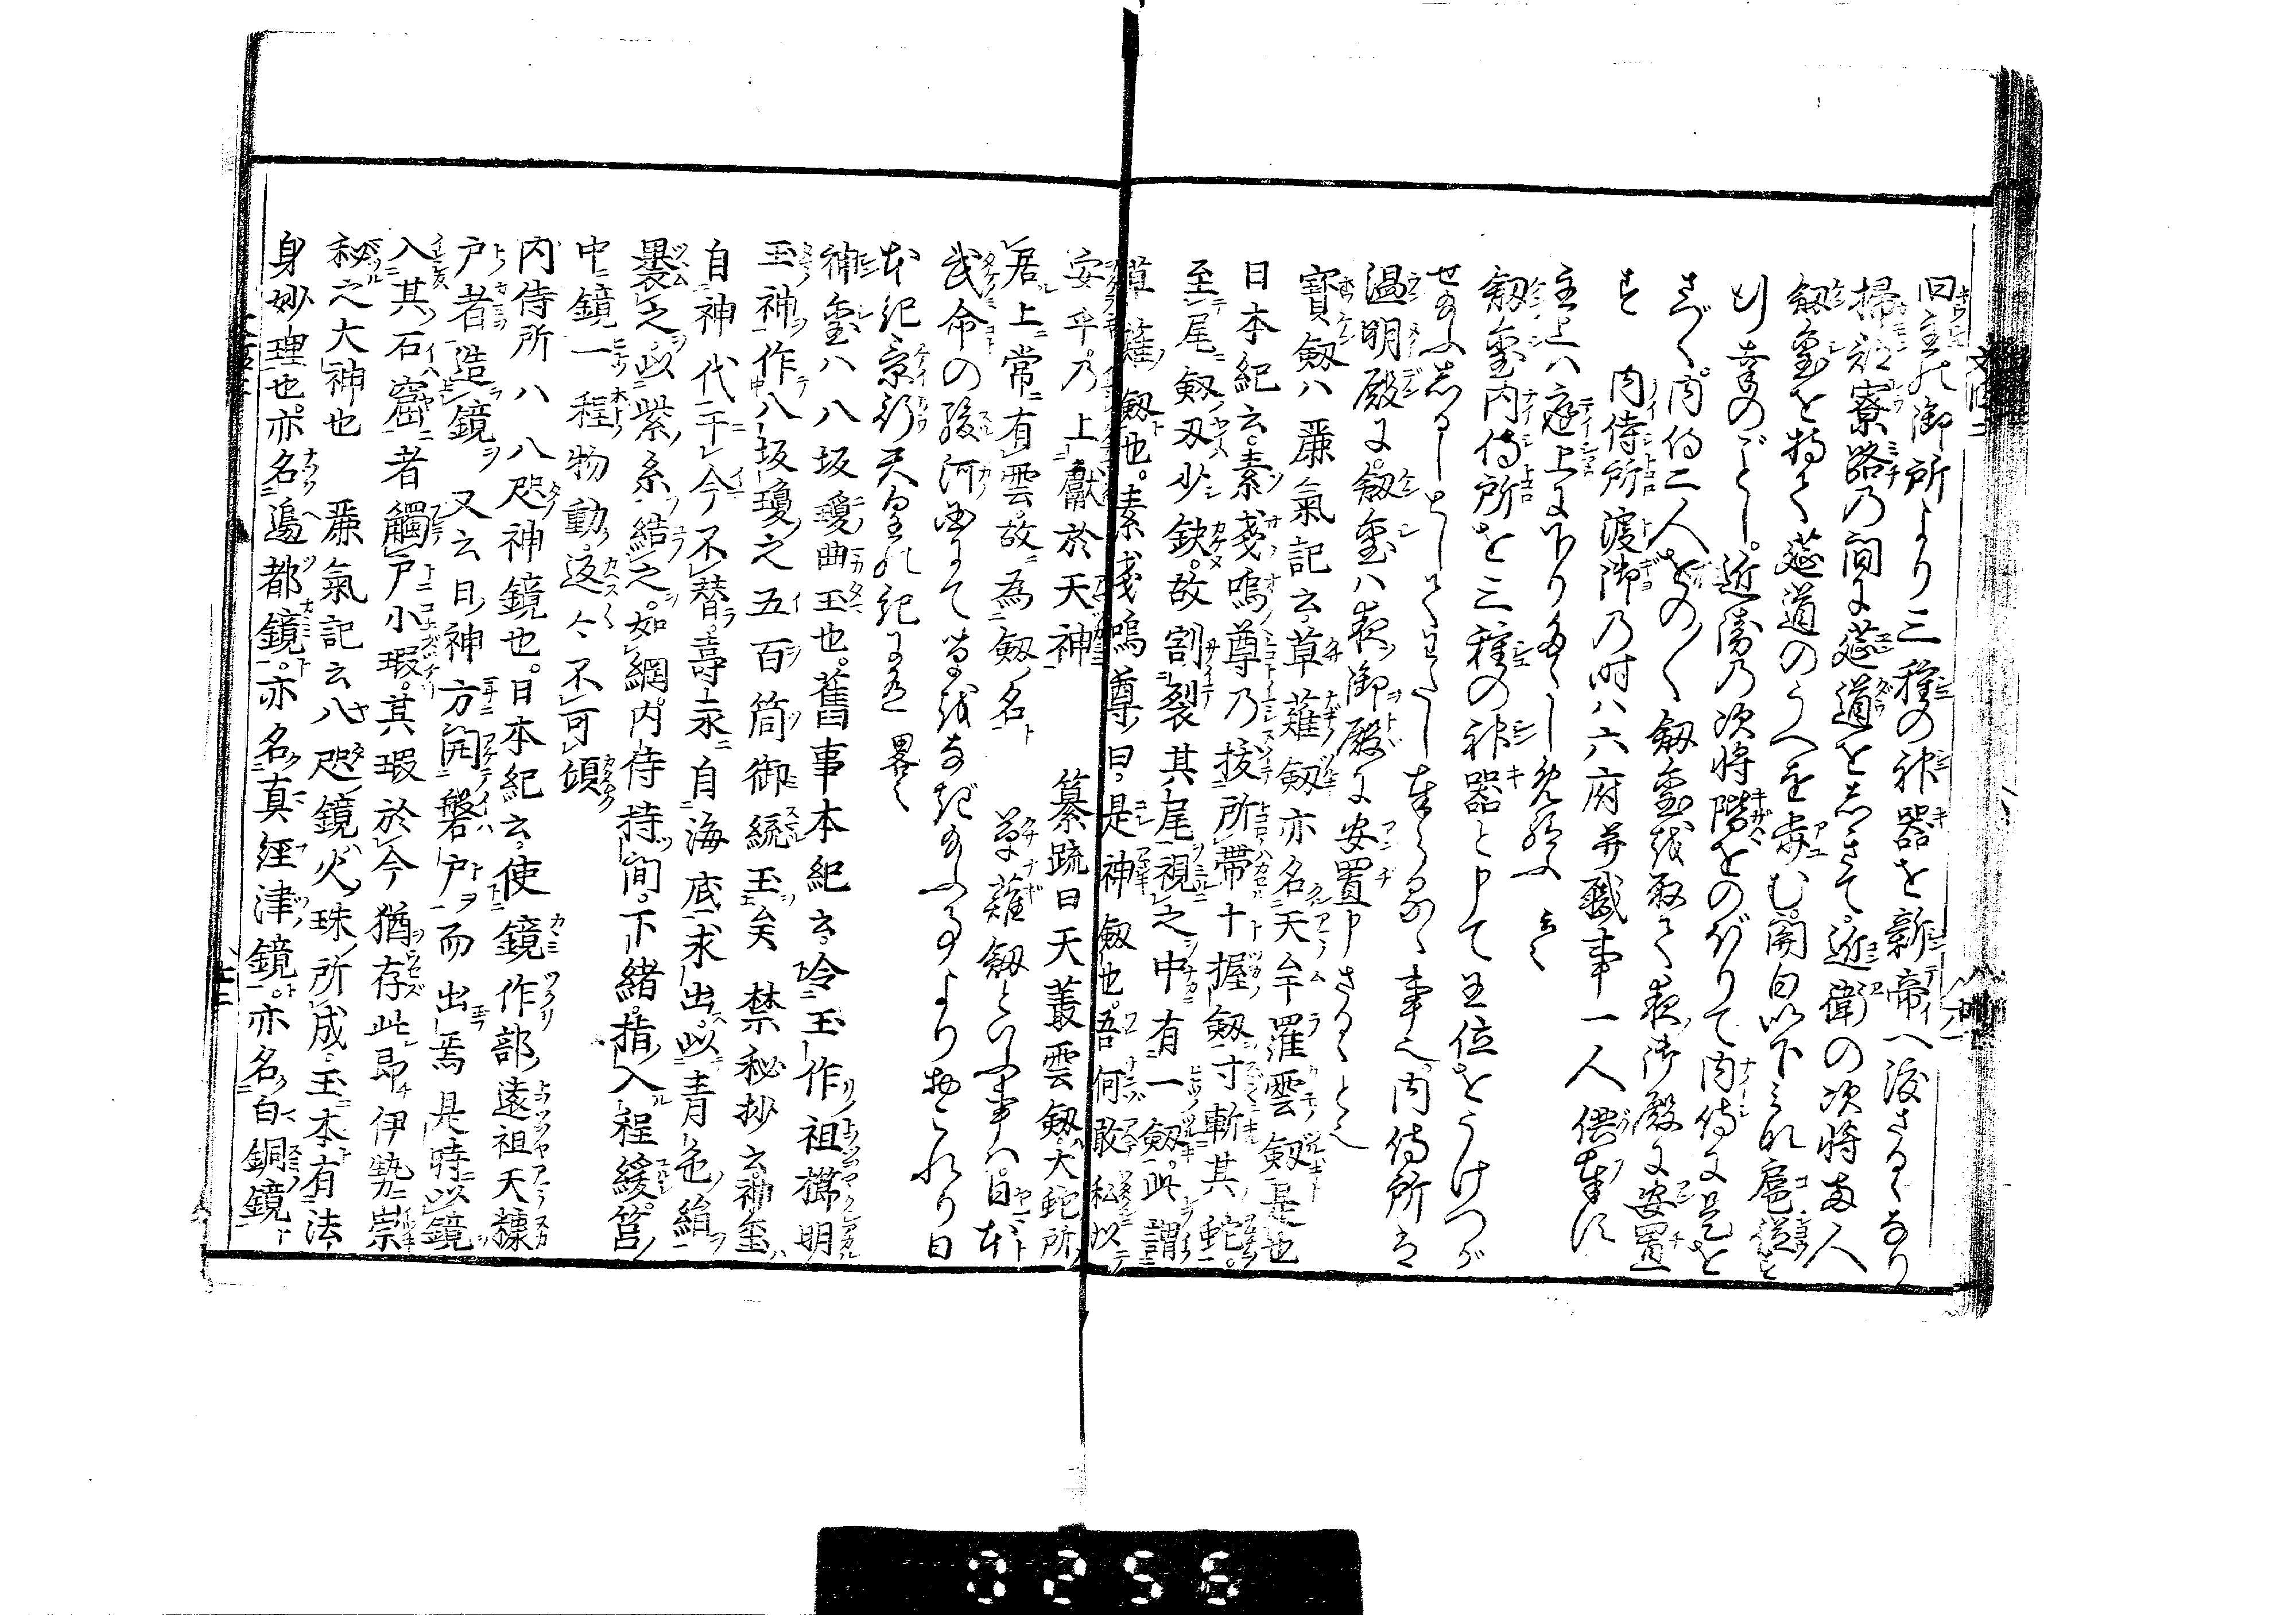 旧主の御所より三種の神器を新帝へ渡さるゝなり
掃部寮路乃間に莚道をしきて。近衛の次将両人
劔璽を持て莚道のうへを歩む。関白以下これに扈従を
行幸のごとし。近衛乃次将階をのぼりて内侍に是を
さづく。内侍二人をの〱劔璽を取て夜御殿に安置
す　内侍所渡御乃時ハ六府并職事一人供奉す
主上ハ庭上に下り
劔璽内侍所を三種の神器と申て王位をうけつが
せ給ふしるしとしてわたし奉らるゝ事也。内侍所は
温明殿に。劔璽ハ夜御殿に安置申さるゝと也
寶劔ハ麗氣記云草薙劔亦名天牟羅雲劔是也
日本紀云。素戔嗚尊乃拔所帯十握劔寸斬其蛇。
至尾劔刃少缺。故割裂其尾視之中有一劔。此謂
草薙劔也。素戔嗚尊曰。是神劔也。吾何敢私以
安乎。乃上獻於天神　纂疏曰天叢雲劔。大蛇所
居上常有雲。故為劔名　草薙劔といふ事ハ。日本
武命の駿河国にて草をなぎ給ふ事より起これり日
本紀景行天皇の紀に有　畧之
神璽ハ八坂瓊曲玉也。舊事本紀云。令玉作祖櫛明
玉神作八坂瓊之五百筒御統玉矣　禁秘抄云。神璽
自神代于今不替。壽永自海底求出。以青色絹
裹之。以紫糸結之。如網。内侍持間。下緒。指入程緩。筥
中鏡一程物動返々不可頌
内侍所ハ八咫神鏡也。日本紀云。使鏡作部遠祖天糠
戸者造鏡　又云日神方開磐戸而出焉是時以鏡
入其石窟者觸戸小瑕。其瑕於今猶存此即伊勢崇
秘之大神也　麗氣記云八咫鏡火珠所成玉本有法
身妙理也。亦名邊都鏡。亦名真経津鏡。亦名白銅鏡